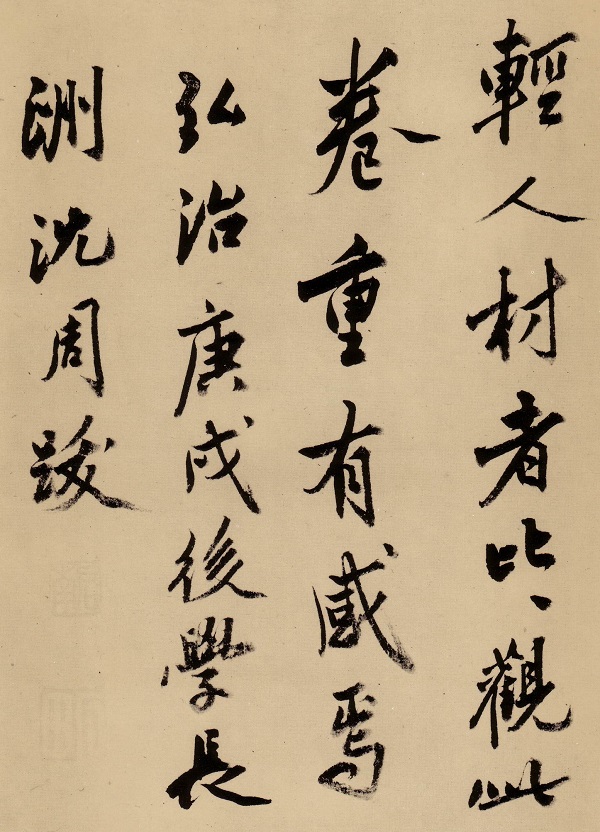 輕人材者比〻觀此
卷重有感焉
弘治庚戌後學長
洲沈周跋